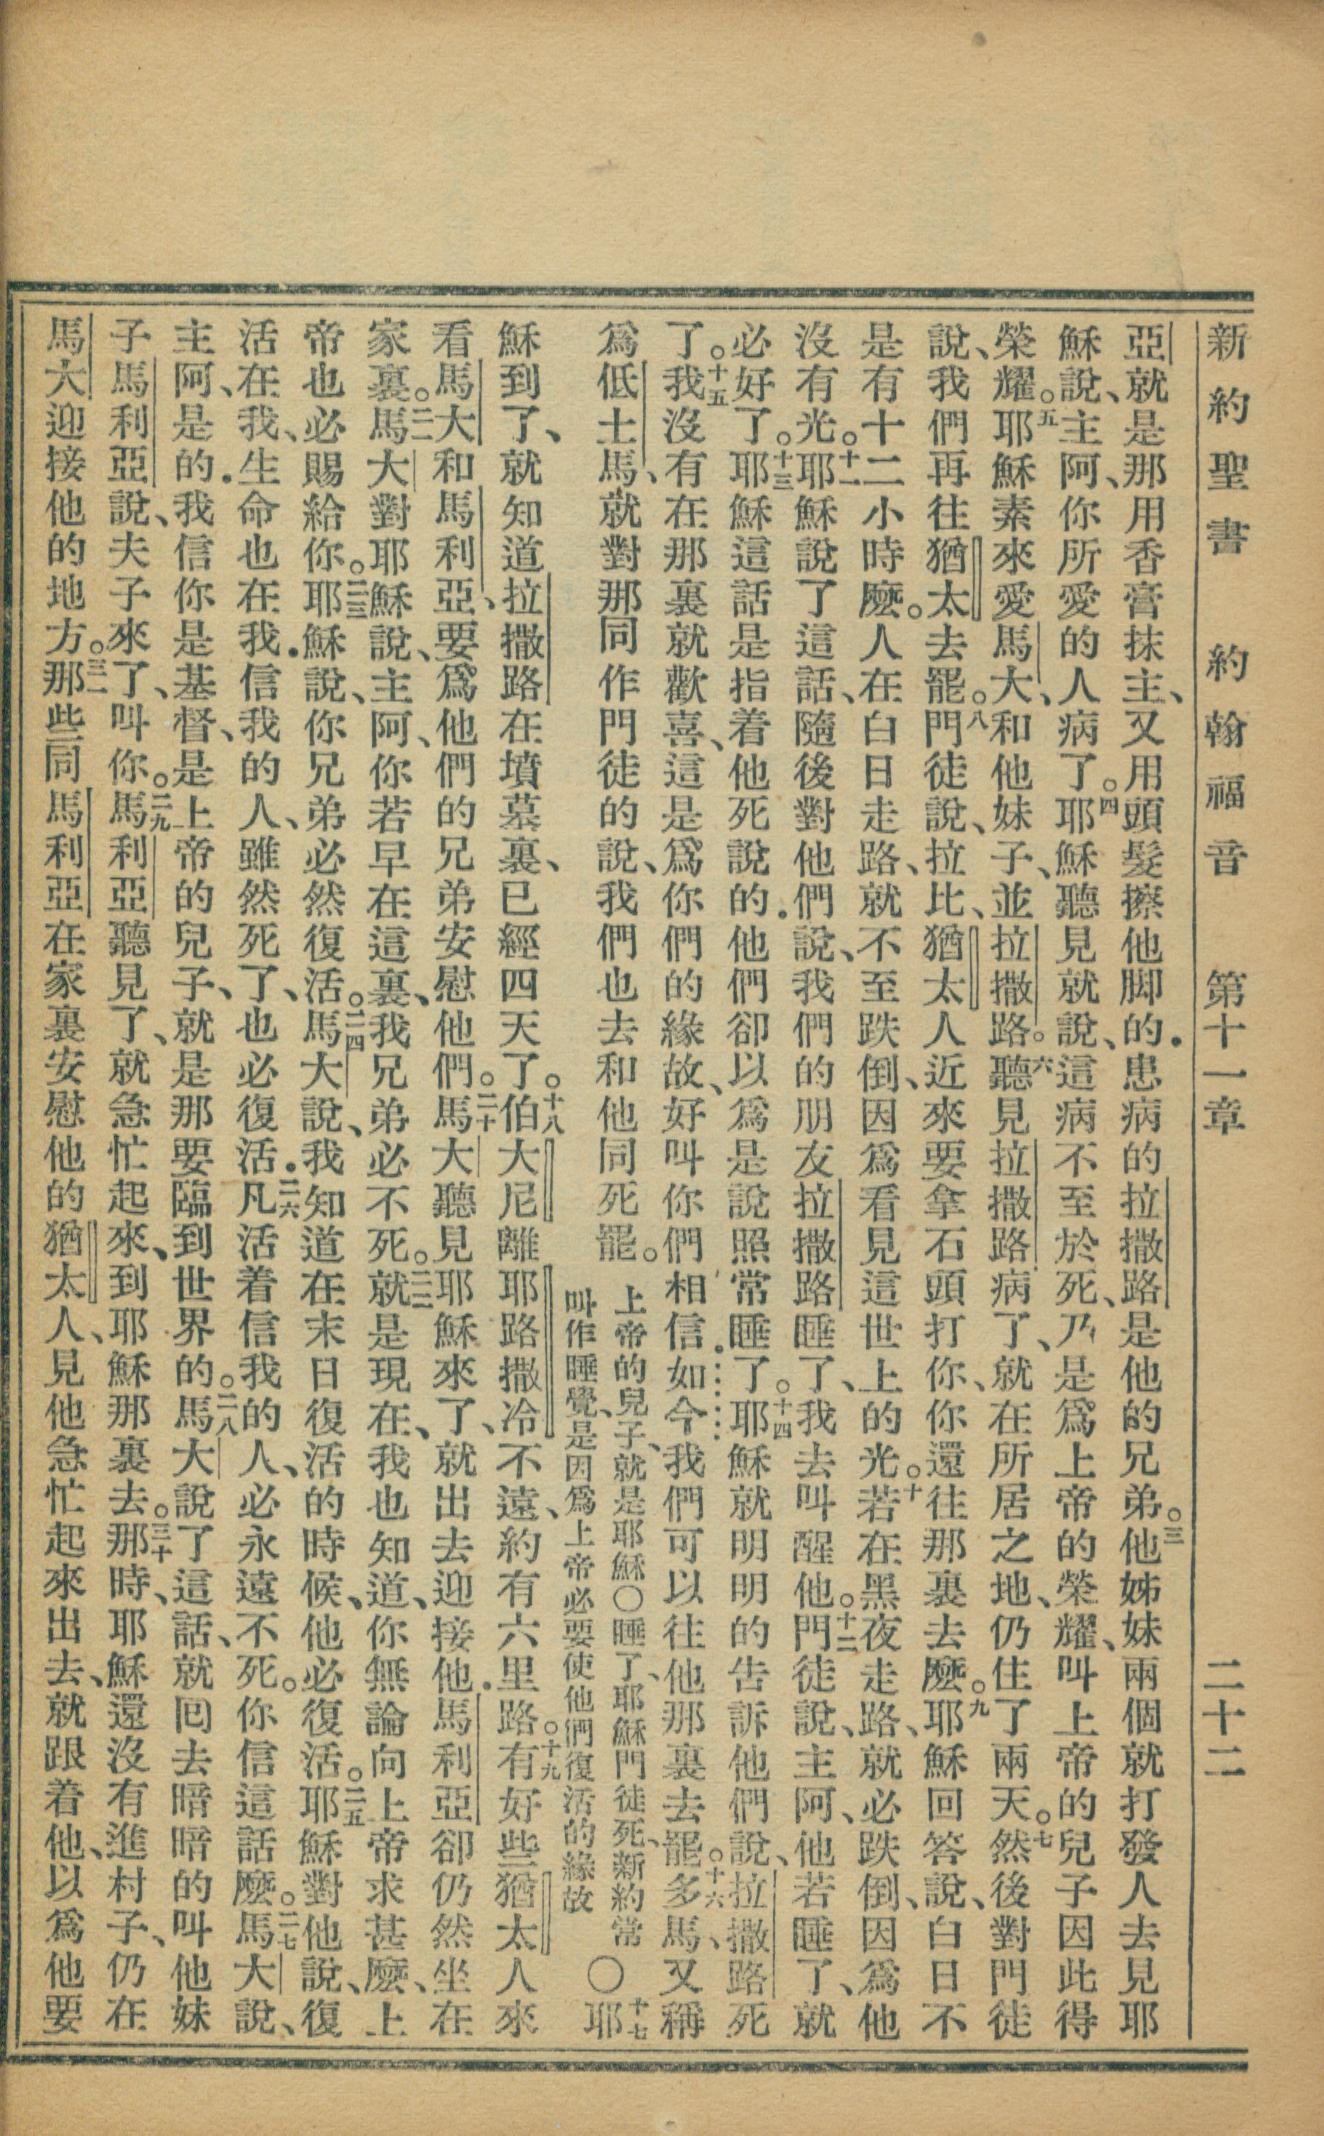 新約聖書 約翰福音 第十一章 二十二
亞就是那用香膏抹主、又用頭髮擦他脚的．患病的拉撒路是他的兄弟。三他姊妹兩個就打發人去見耶
穌說、主阿、你所愛的人病了。四耶穌聽見就說、這病不至於死、乃是爲上帝的榮耀、叫上帝的兒子因此得
榮耀。五耶穌素來愛馬大、和他妹子、並拉撒路。六聽見拉撒路病了、就在所居之地、仍住了兩天。七然後對門徒
說、我們再往猶太去罷。八門徒說、拉比、猶太人近來要拿石頭打你、你還往那裏去麽。九耶穌回答說、白日不
是有十二小時麽。人在白日走路、就不至跌倒、因爲看見這世上的光。十若在黑夜走路、就必跌倒、因爲他
沒有光。十一耶穌說了這話、隨後對他們說、我們的朋友拉撒路睡了、我去叫醒他。十二門徒說、主阿、他若睡了、就
必好了。十三耶穌這話是指着他死說的．他們卻以爲是說照常睡了。十四耶穌就明明的告訴他們說、拉撒路死
了。十五我沒有在那裏就歡喜、這是爲你們的緣故、好叫你們相信．如今我們可以往他那裏去罷。十六多馬、又稱
爲低土馬、就對那同作門徒的說、我們也去和他同死罷。上帝的兒子、就是耶穌○睡了、耶穌門徒死、新約常
叫作睡覺、是因爲上帝必要使他們復活的緣故 ○十七耶
穌到了、就知道拉撒路在墳墓裏、已經四天了。十八伯大尼離耶路撒冷不遠、約有六里路。十九有好些猶太人來
看馬大和馬利亞、要爲他們的兄弟安慰他們。二十馬大聽見耶穌來了、就出去迎接他．馬利亞卻仍然坐在
家裏。二一馬大對耶穌說、主阿、你若早在這裏、我兄弟必不死。二二就是現在、我也知道、你無論向上帝求甚麽、上
帝也必賜給你。二三耶穌說、你兄弟必然復活。二四馬大說、我知道在末日復活的時候、他必復活。二五耶穌對他說、復
活在我、生命也在我．信我的人、雖然死了、也必復活．二六凡活着信我的人、必永遠不死。你信這話麽。二七馬大說、
主阿、是的．我信你是基督、是上帝的兒子、就是那要臨到世界的。二八馬大說了這話、就囘去暗暗的叫他妹
子馬利亞說、夫子來了、叫你。二九馬利亞聽見了、就急忙起來、到耶穌那裏去。三十那時、耶穌還沒有進村子、仍在
馬大迎接他的地方。三一那些同馬利亞在家裏安慰他的猶太人、見他急忙起來出去、就跟着他、以爲他要